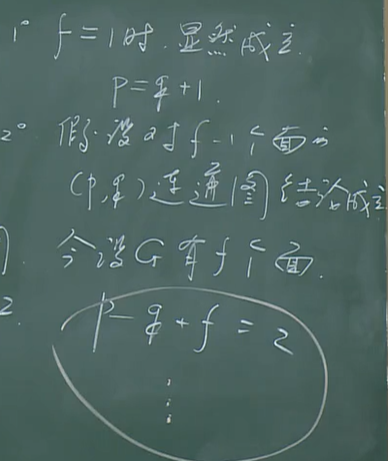 1° f=1时.显然成立.
p=q+1.
2° 假设对f-1个面的
(p,q)连通图结论成立
今设G有f个面.
2.
p-q+f=2
⋮